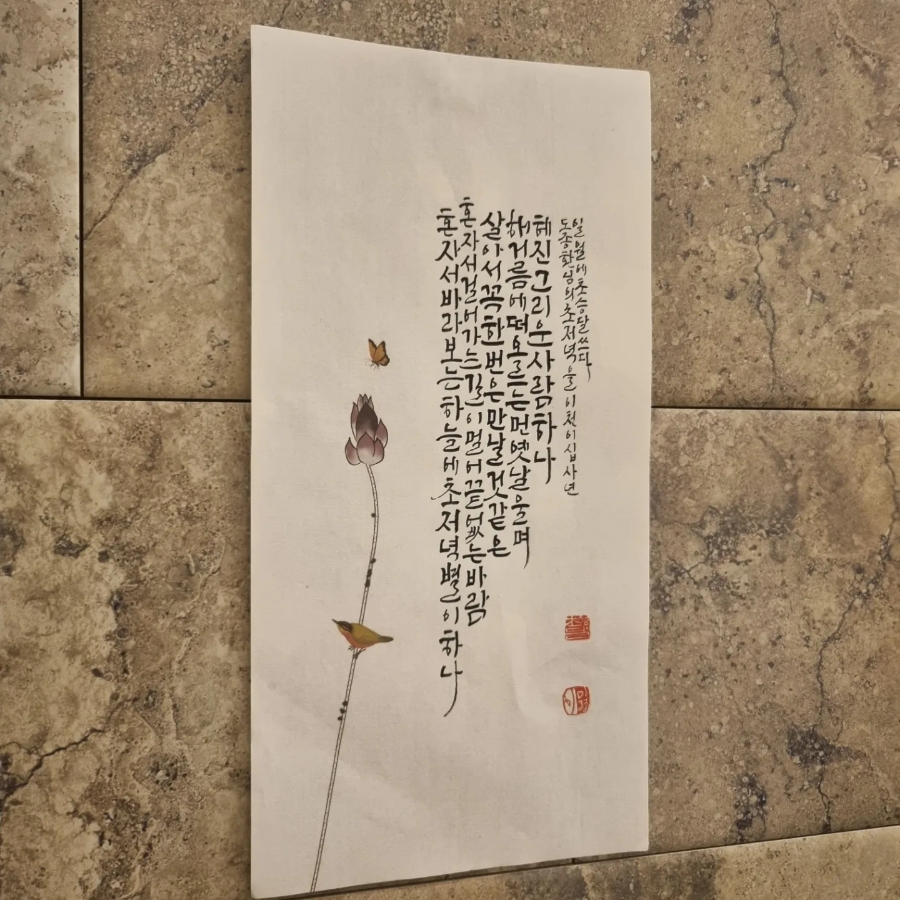 혼자서바라보는하늘에초저녁별이하나
혼자서걸어가는길이멀어끝없는바람
살아서꼭한번은만날것같은
해거름에떠오르는먼옛날울며
헤진그리운사람하나
도종환님의초저녁을이천이십사년
일월에초승달쓰다